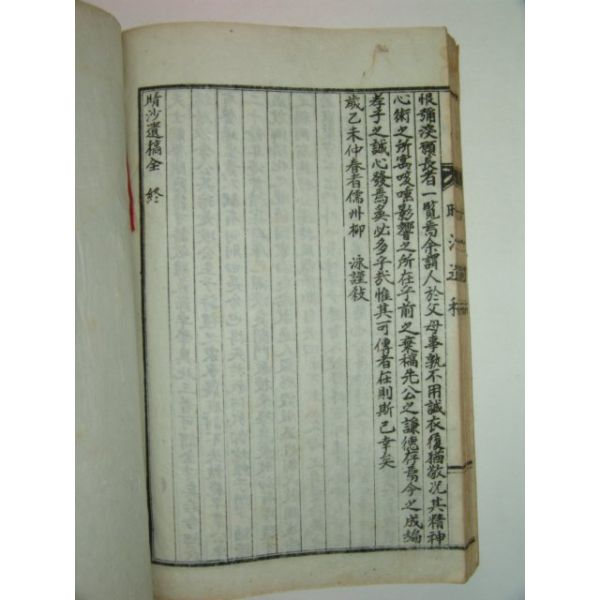 恨彌深願長者一覽焉余謂人於父母事孰不用誠衣履猶敬況其精神
心術之所寓咳唾影響之所在乎前之棄稿先公之謙德存焉今之成編
孝子之誠心發焉奚必多乎哉惟其可傳者在則斯已幸矣
歲乙未仲春者儒州柳 泳謹敍
晴沙遺稿全 終
晴沙遺稿